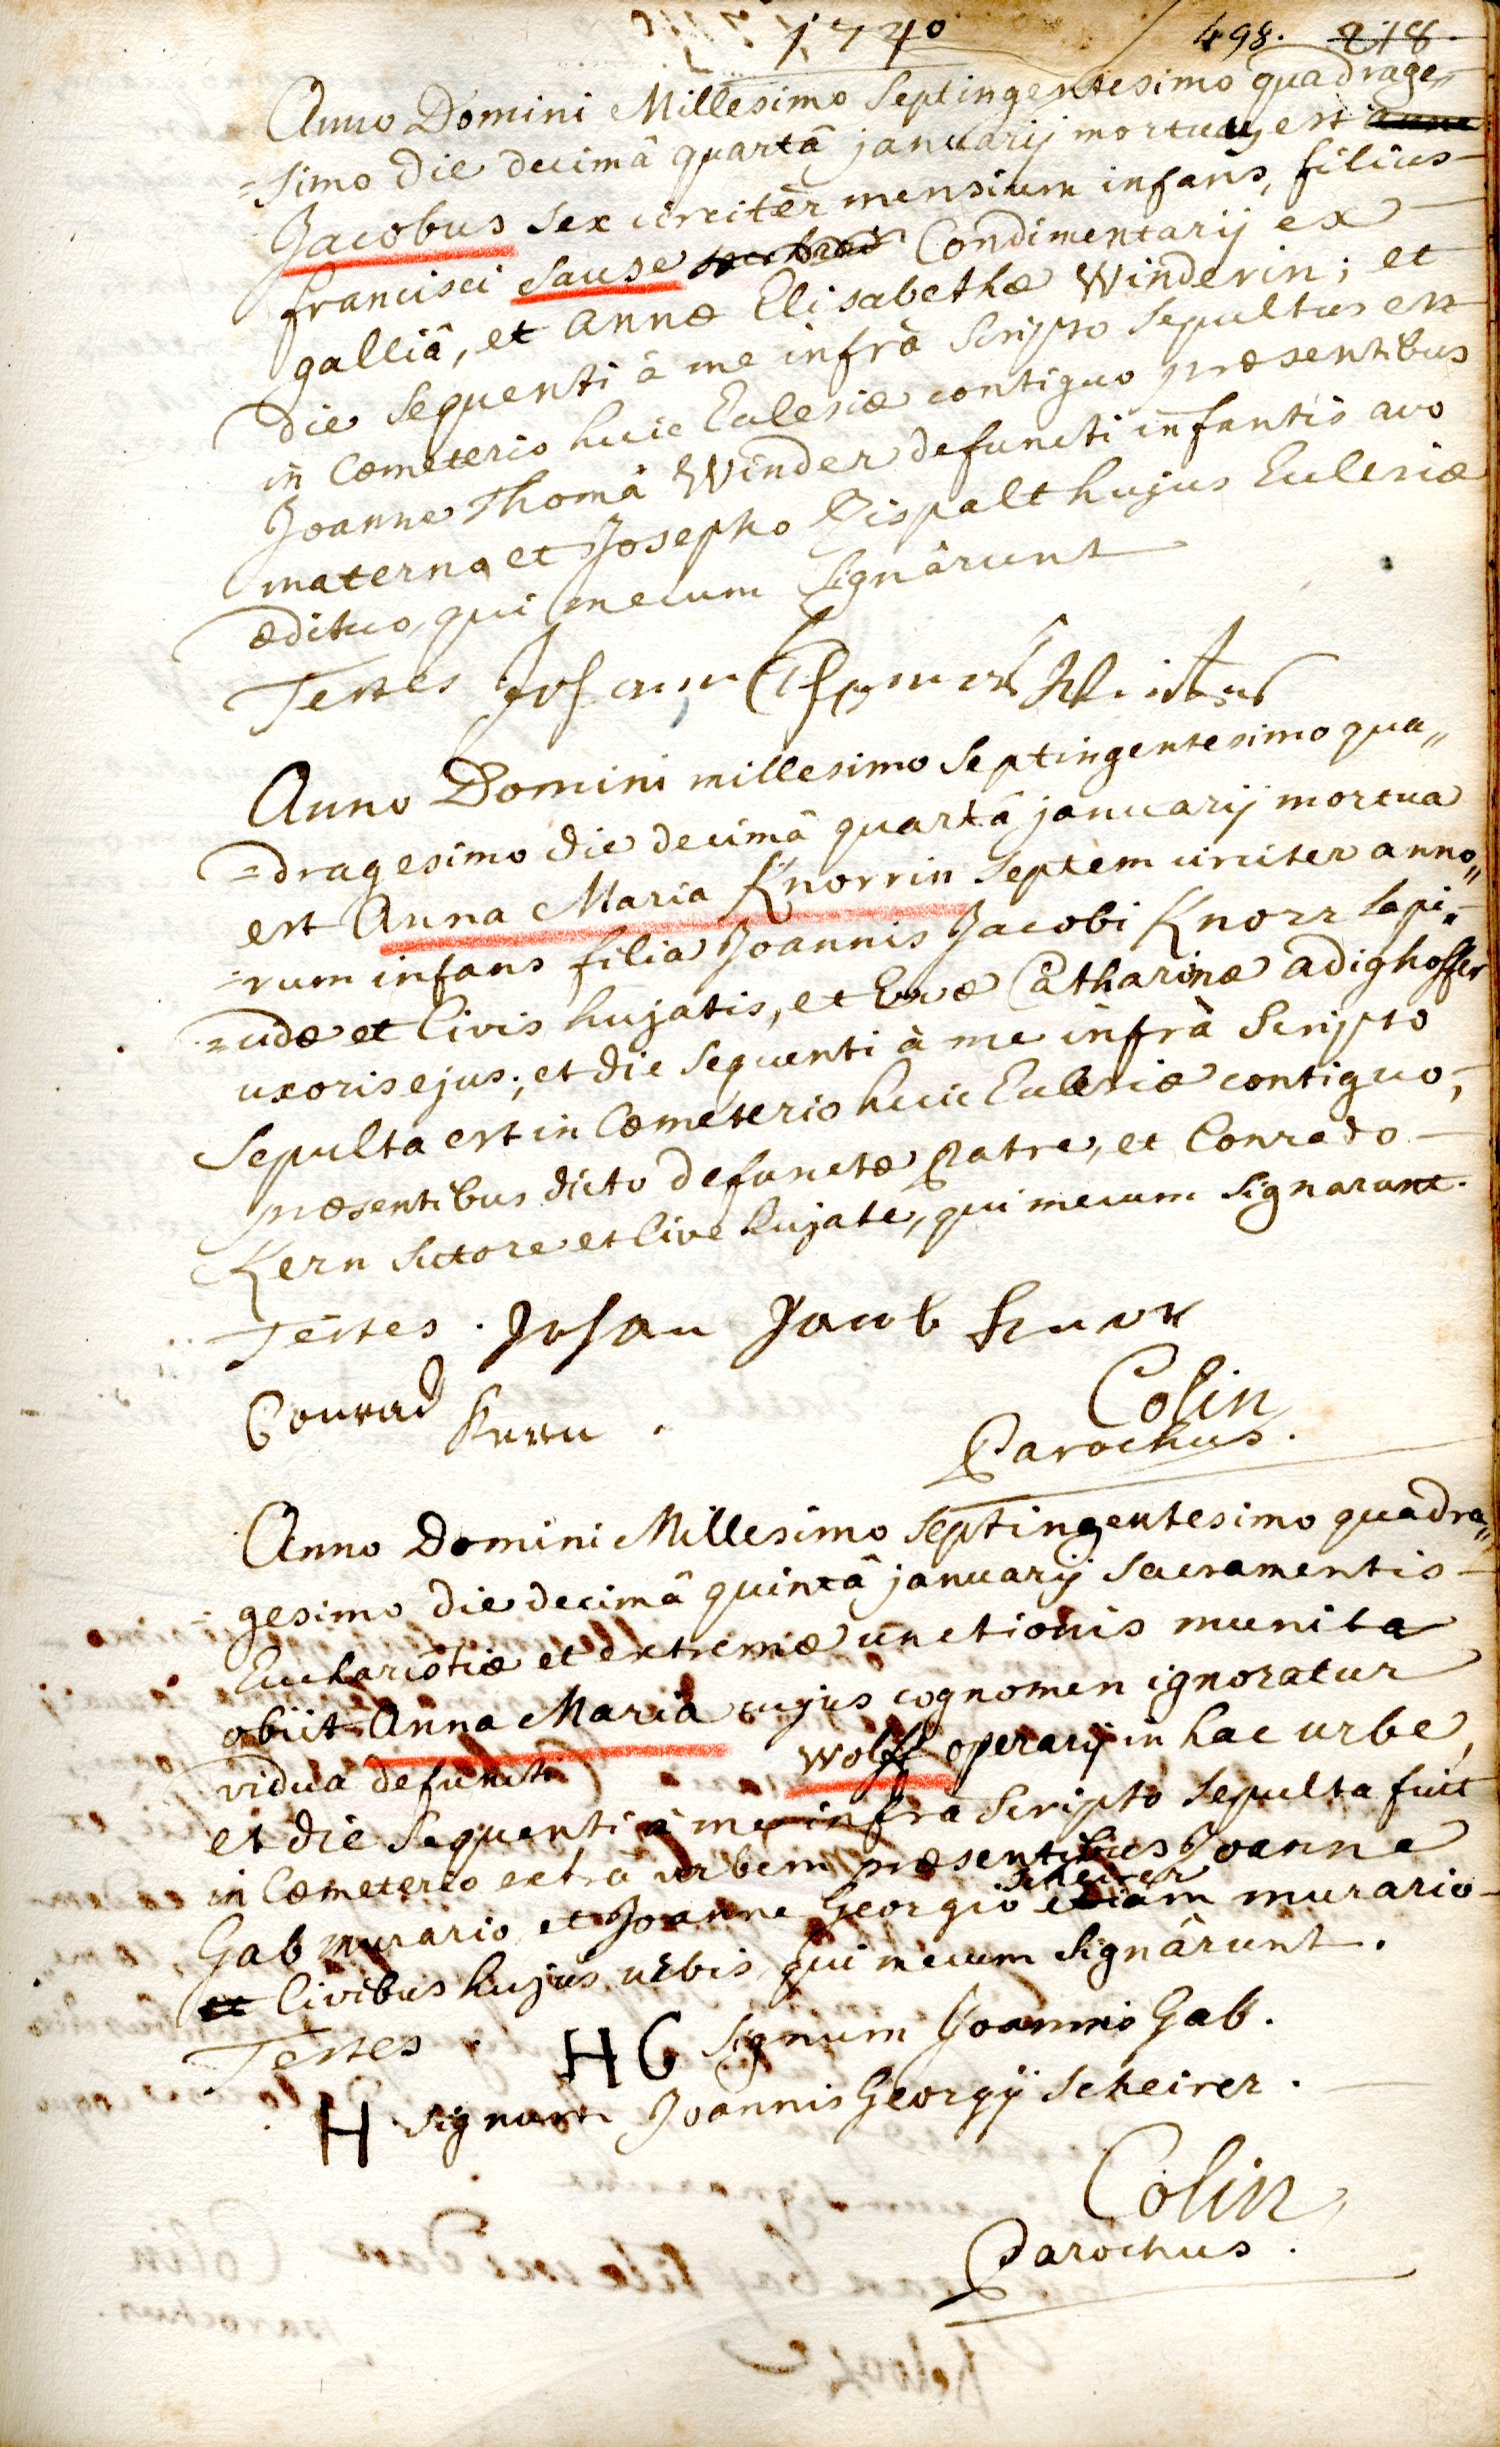 1740
498. 218
Anno Domini Millesimo Septingentesimo quadrage„
=simo die decimâ quartâ januarij mortuus est
Jacobus sex circiter mensium infans, filius
francisci Sause Condimentarij ex
galliâ, et annæ Elisabethæ Winderin; et
die sequenti à me infrà scripto sepultus est
in Cœmeterio huic Ecclesiæ contiguo præsentibus
Joanne Thomâ Winder defuncti infantis avo
materno et Josepho Zispalt hujus Ecclesiæ
ædituo, qui mecum signârunt
Testes Johann Thomas Winder
Anno Domini millesimo Septingentesimo qua„
=dragesimo die decimâ quartâ januarij mortua
est Anna Maria Knorrin septem circiter anno„
=rum infans filia Joannis Jacobi Knorr lapi„
=cidæ et Civis hujatis, et Evæ Catharinæ adighoffer
uxoris ejus; et die sequenti à me infrà scripto
Sepulta est in Cœmeterio huic Ecclesiæ contiguo,
præsentibus dicto defunctæ Patre, et Conrado
Kern sutore et Cive hujate, qui mecum signarunt.
Testes . Johan Jacob Knor
Conrad Kern .
Colin
Parochus.
Anno Domini Millesimo Septingentesimo quadra„
=gesimo die decimâ quintâ januarij sacramentis
Eucharistiæ et extremæ unctionis munita
obiit Anna Maria cujus cognomen ignoratur
vidua defuncti Wolff operarij in hac urbe,
et die sequenti à me infra scripto sepulta fuit
in Cœmeterio extrà urbem præsentibus Joanne
Gab murario et Joanne Georgio Scheirer etiam murario
et Civibus hujus urbis qui mecum signârunt.
Testes . HG signum Joannis Gab.
H signum Joannis Georgij Scheirer.
Colin
Parochus.